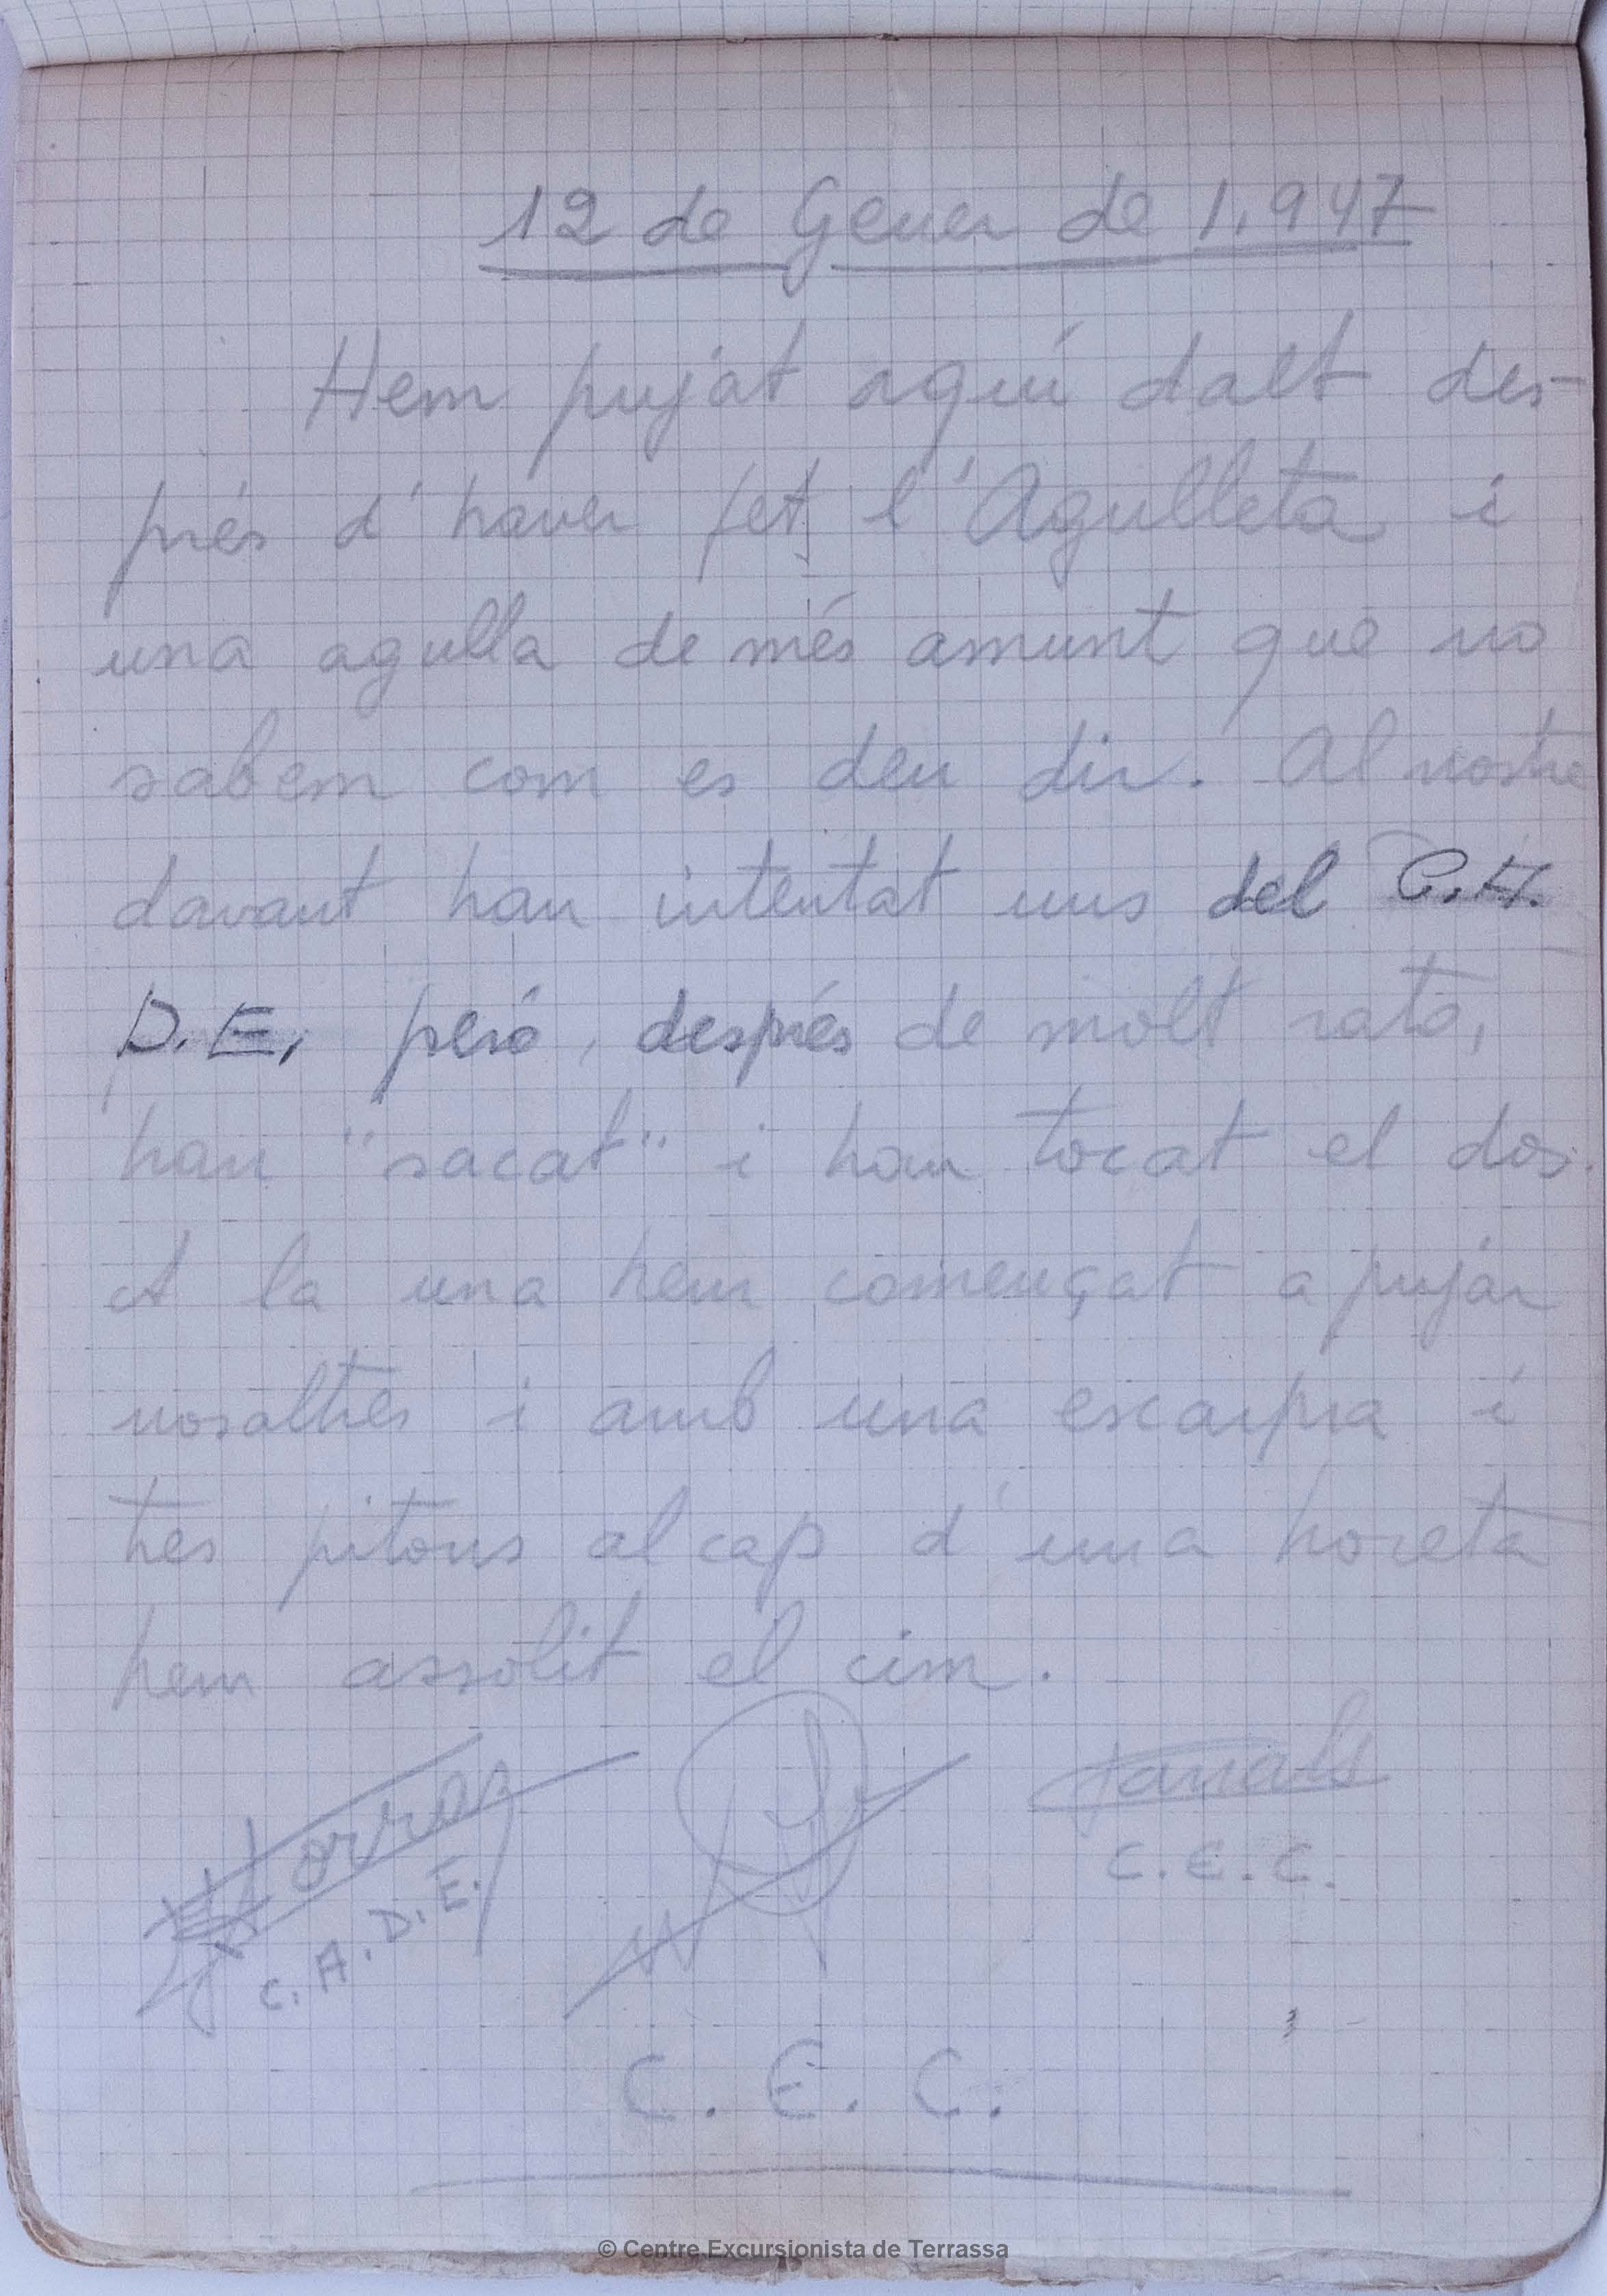 12 de Gener de 1.947
Hem pujat aquí dalt des-
prés d'haver fet l'Agulleta i
una agulla de més amunt que no
sabem com es deu dir. Al nostre
davant han intentat uns del C.A.
D.E. però, després de molt rato,
han "sacat" i han tocat el dos.
A la una hem començat a pujar
nosaltres i amb una escarpra i
tres pitons al cap d'una horeta
hem assolit el cim.
C.A.D.E.
Canals
C.E.C.
C.E.C.
© Centre Excursionista de Terrassa